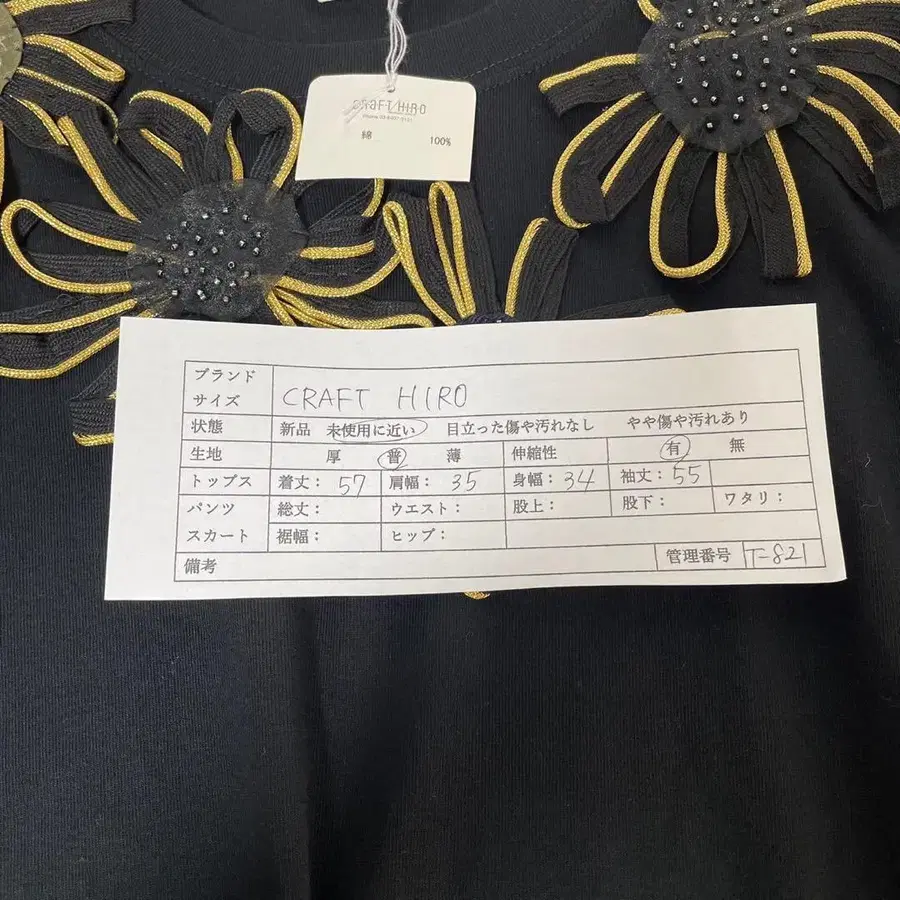 CRAFT HIRO
綿 100%
ブランド
サイズ CRAFT HIRO
状態 新品 未使用に近い 目立った傷や汚れなし やや傷や汚れあり
生地 厚 普 薄 伸縮性 有 無
トップス 着丈: 57 肩幅: 35 身幅: 34 袖丈: 55
パンツ 総丈: ウエスト: 股上: 股下: ワタリ:
スカート 裾幅: ヒップ:
備考 管理番号 T-821